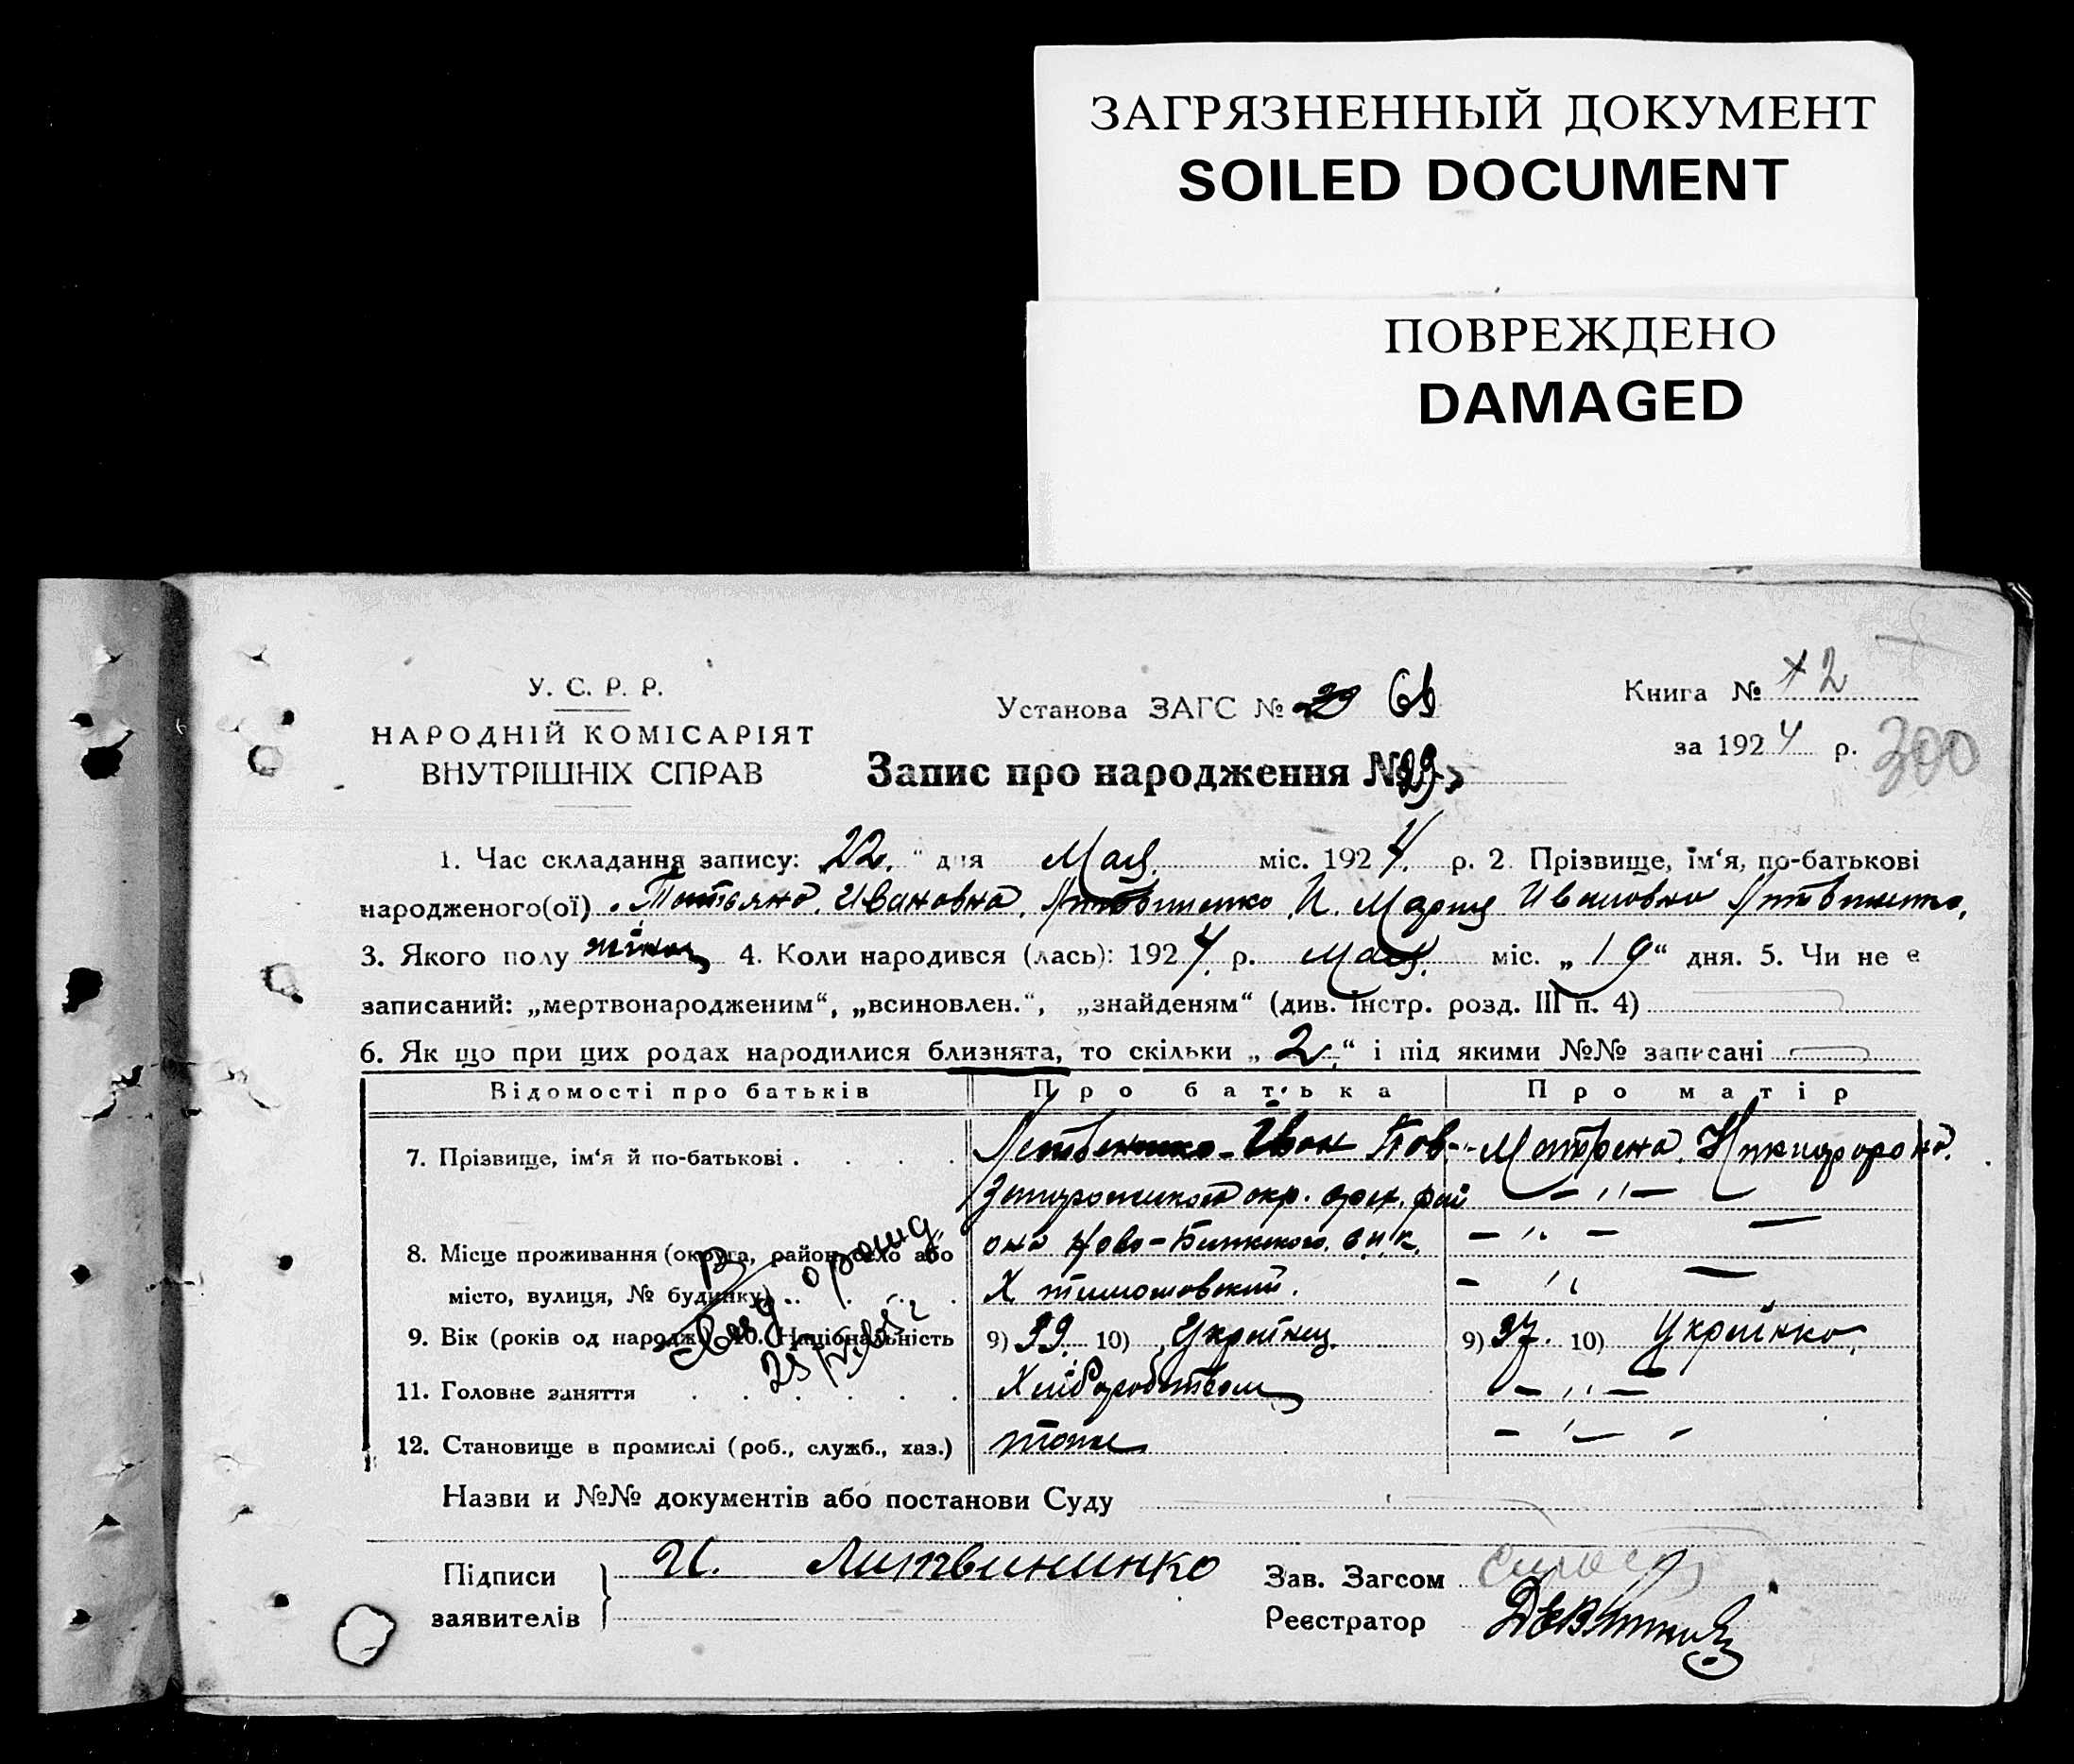 ЗАГРЯЗНЕННЫЙ ДОКУМЕНТ
SOILED DOCUMENT
ПОВРЕЖДЕНО
DAMAGED
У. С. Р. Р.
НАРОДНІЙ КОМІСАРІЯТ
ВНУТРІШНІХ СПРАВ
Установа ЗАГС №
Книга № 2
за 1924 р.
300
Запис про народження № 29
1. Час складання запису: „22“ дня Мая міс. 1924 р. 2. Прізвище, ім‘я, по-батькові
народженого(ої) Татьяна Ивановна Литвиненко И. Мария Ивановна Литвиненко
3. Якого полу жіноч 4. Коли народився (лась): 1924 р. Мая міс. „19“ дня. 5. Чи не є
записаний: „мертвонародженим“, „всиновлен.“, „знайденям“ (див. інстр. розд. III п. 4)
6. Як що при цих родах народилися близнята, то скільки „2“ і під якими №№ записані
Відомості про батьків Про батька Про матір
7. Прізвище, ім‘я й по-батькові Іван Матрена
окр.
8. Місце проживання (округа, район, село або Ново-
місто, вулиця, № будинку) Х
9. Вік (років од народж.) 10. Національність 9) 39 10) Українец 9) 37 10) Українка
11. Головне заняття Хліборобством — „ —
12. Становище в промислі (роб., служб., хаз.) тоже — „ —
Назви и №№ документів або постанови Суду
Підписи
заявителів
И. Литвининко
Зав. Загсом
Реєстратор